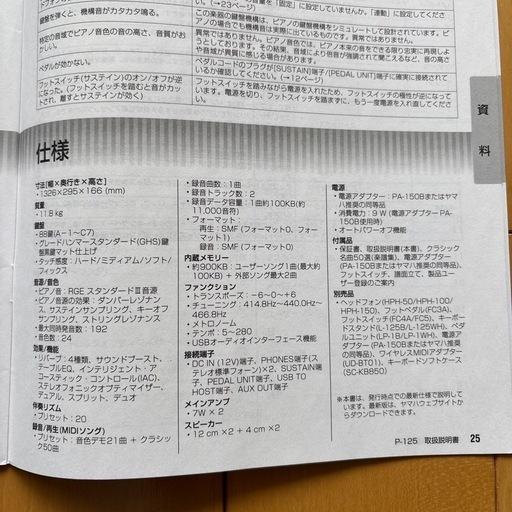 音量を「固定」に設定していませんか。「連動」に設定してくださ
い。(→23ページ)
鍵盤を弾くと、機構音がカタカタ鳴る。
この楽器の鍵盤機構は、ピアノの鍵盤機構をシミュレートして設計されています。ピ
アノの場合でも機構音は実際に出ているものです。異常ではありません。
特定の音域でピアノ音色の音の高さ、音質がお
かしい。
異常ではありません。ピアノ音色では、ピアノ本来の音をできる限り忠実に再現しよ
うとしております。その結果、音域により倍音が強調されて聞こえるなど、音の高さ
や音質が異質に感じる場合があります。
ペダルが効かない。
ペダルコードのプラグが[SUSTAIN]端子/[PEDAL UNIT]端子に確実に接続されて
いるか確認してください。(→12ページ)
フットスイッチ(サステイン)のオン/オフが逆
になった。(フットスイッチを踏むと音がカッ
トされ、離すとサステインが効く)
フットスイッチを踏みながら電源を入れたため、フットスイッチの極性が逆になって
います。電源を切り、フットスイッチを踏まずに、もう一度電源を入れ直してください。
資
料
仕様
寸法[幅×奥行き×高さ]
・1326×295×166 (mm)
質量
・11.8 kg
鍵盤
・88鍵(A−1〜C7)
・グレードハンマースタンダード(GHS)鍵
盤黒鍵マット仕上げ
・タッチ感度：ハード/ミディアム/ソフト/
フィックス
音源/音色
・ピアノ音：RGE スタンダードⅡ音源
・ピアノ音源の効果：ダンパーレゾナン
ス、サステインサンプリング、キーオフ
サンプリング、ストリングレゾナンス
・最大同時発音数：192
・音色数：24
効果/機能
・リバーブ：4種類、サウンドブースト、
テーブルEQ、インテリジェント・ア
コースティック・コントロール(IAC)、
ステレオフォニックオプティマイザー、
デュアル、スプリット、デュオ
伴奏リズム
・プリセット：20
録音/再生(MIDIソング)
・プリセット：音色デモ21曲 + クラシッ
ク50曲
・録音曲数：1曲
・録音トラック数：2
・録音データ容量：1曲約100KB(約
11,000音符)
・フォーマット：
再生：SMF (フォーマット0、フォー
マット1)
録音：SMF (フォーマット0)
内蔵メモリー
・約900KB：ユーザーソング1曲(最大約
100KB) + 外部ソング最大2曲
ファンクション
・トランスポーズ：−6〜0〜+6
・チューニング：414.8Hz〜440.0Hz〜
466.8Hz
・メトロノーム
・テンポ：5〜280
・USBオーディオインターフェース機能
接続端子
・DC IN (12V)端子、PHONES端子(ス
テレオ標準フォーン)×2、SUSTAIN端
子、PEDAL UNIT端子、USB TO
HOST端子、AUX OUT端子
メインアンプ
・7W × 2
スピーカー
・12 cm ×2 + 4 cm ×2
電源
・電源アダプター：PA-150Bまたはヤマ
ハ推奨の同等品
・消費電力：9 W (電源アダプター PA-
150B使用時)
・オートパワーオフ機能
付属品
・保証書、取扱説明書(本書)、クラシック
名曲50選(楽譜集)、電源アダプター
(PA-150Bまたはヤマハ推奨の同等品)、
フットスイッチ、譜面立て、製品ユー
ザー登録のご案内
別売品
・ヘッドフォン(HPH-50/HPH-100/
HPH-150)、フットペダル(FC3A)、
フットスイッチ(FC4A/FC5)、キーボー
ドスタンド(L-125B/L-125WH)、ペダ
ルユニット(LP-1B/LP-1WH)、電源ア
ダプター (PA-150Bまたはヤマハ推奨の
同等品)、ワイヤレスMIDIアダプター
(UD-BT01)、キーボードソフトケース
(SC-KB850)
＊本書は、発行時点での最新仕様で説明して
います。最新版は、ヤマハウェブサイトか
らダウンロードできます。
P-125 取扱説明書 25